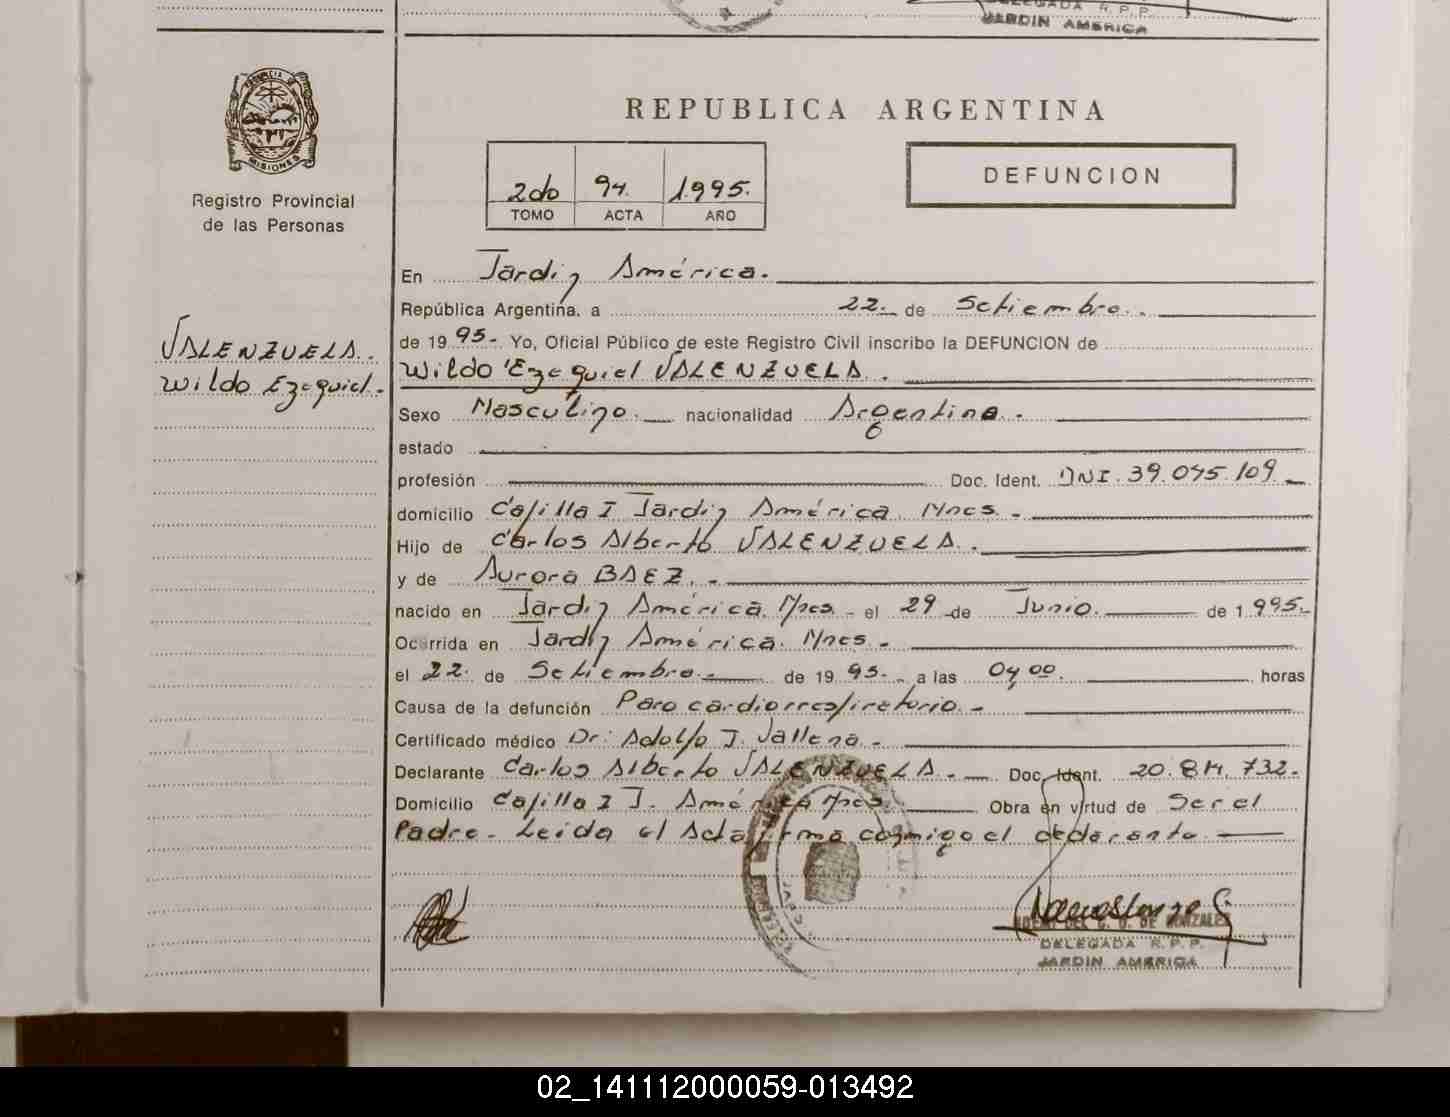 DELEGADA R. P. P.
JARDIN AMERICA
PROVINCIA DE
MISIONES
Registro Provincial
de las Personas
VALENZUELA.
Wildo Ezequiel.-
REPUBLICA ARGENTINA
2do 94. 1.995.
TOMO ACTA AÑO
DEFUNCION
En Jardin América.
República Argentina. a 22.- de Setiembre.-
de 19 95.- Yo, Oficial Público de este Registro Civil inscribo la DEFUNCION de
Wildo Ezequiel VALENZUELA.
Sexo Masculino.- nacionalidad Argentina.-
estado
profesión Doc. Ident. DNI. 39.045.109.-
domicilio Capilla I Jardin América. Mnes.-
Hijo de Carlos Alberto VALENZUELA.
y de Aurora BAEZ.-
nacido en Jardin América. Mnes.- el 29 de Junio. de 1.995.-
Ocurrida en Jardin América. Mnes.-
el 22. de Setiembre.- de 19 95.- a las 04,00. horas
Causa de la defunción Paro cardiorrespiratorio.-
Certificado médico Dr: Adolfo J.
Declarante Carlos Alberto VALENZUELA.- Doc. Ident. 20.814.732.-
Domicilio Capilla I J. América Mnes Obra en virtud de Ser el
Padre.- Leida el Acta firma conmigo el declarante.-
DE GONZALEZ
DELEGADA R. P. P.
JARDIN AMERICA
02_141112000059-013492